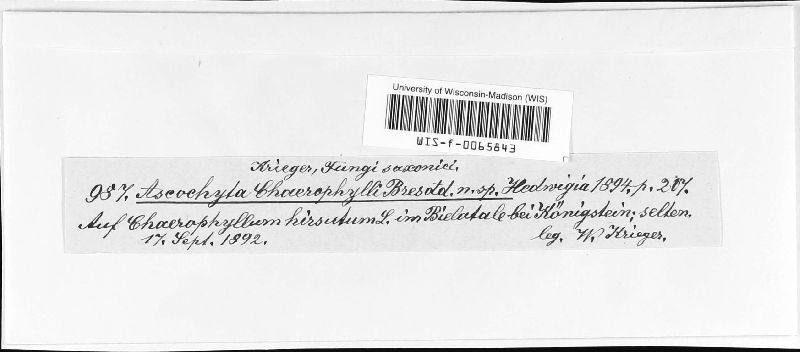 University of Wisconsin-Madison (WIS)
WIS-f-0065843
Krieger, Fungi saxonici.
987. Ascochyta Chaerophylli Bresad. n. sp. Hedwigia 1894, p. 207.
Auf Chaerophyllum hirsutum L. im Bielatale bei Königstein; selten.
17. Sept. 1892. leg. W. Krieger.